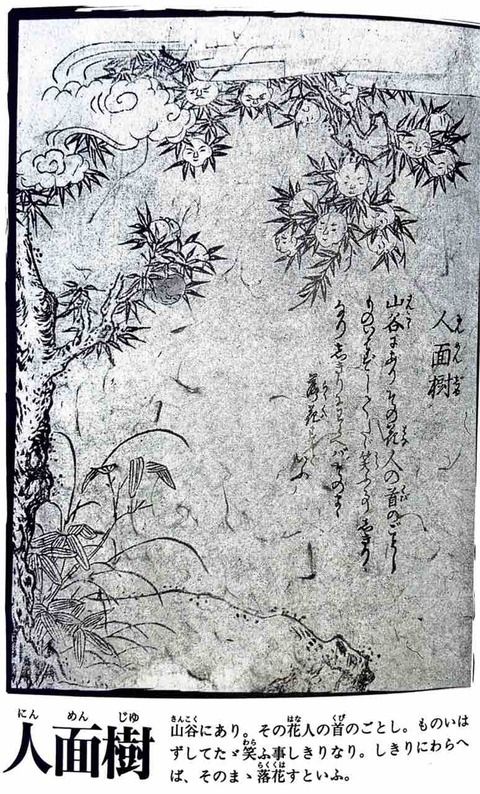 人面樹
山谷にありその花人の首のごとし
ものいはずしてたゞ笑ふ事しきり
なりしきりにわらへバそのまゝ
落花すといふ
にん めん じゆ
人面樹
さんこく はな くび
山谷にあり。その花人の首のごとし。ものいは
わら
ずしてたゞ笑ふ事しきりなり。しきりにわらへ
らくくは
ば、そのまゝ落花すといふ。